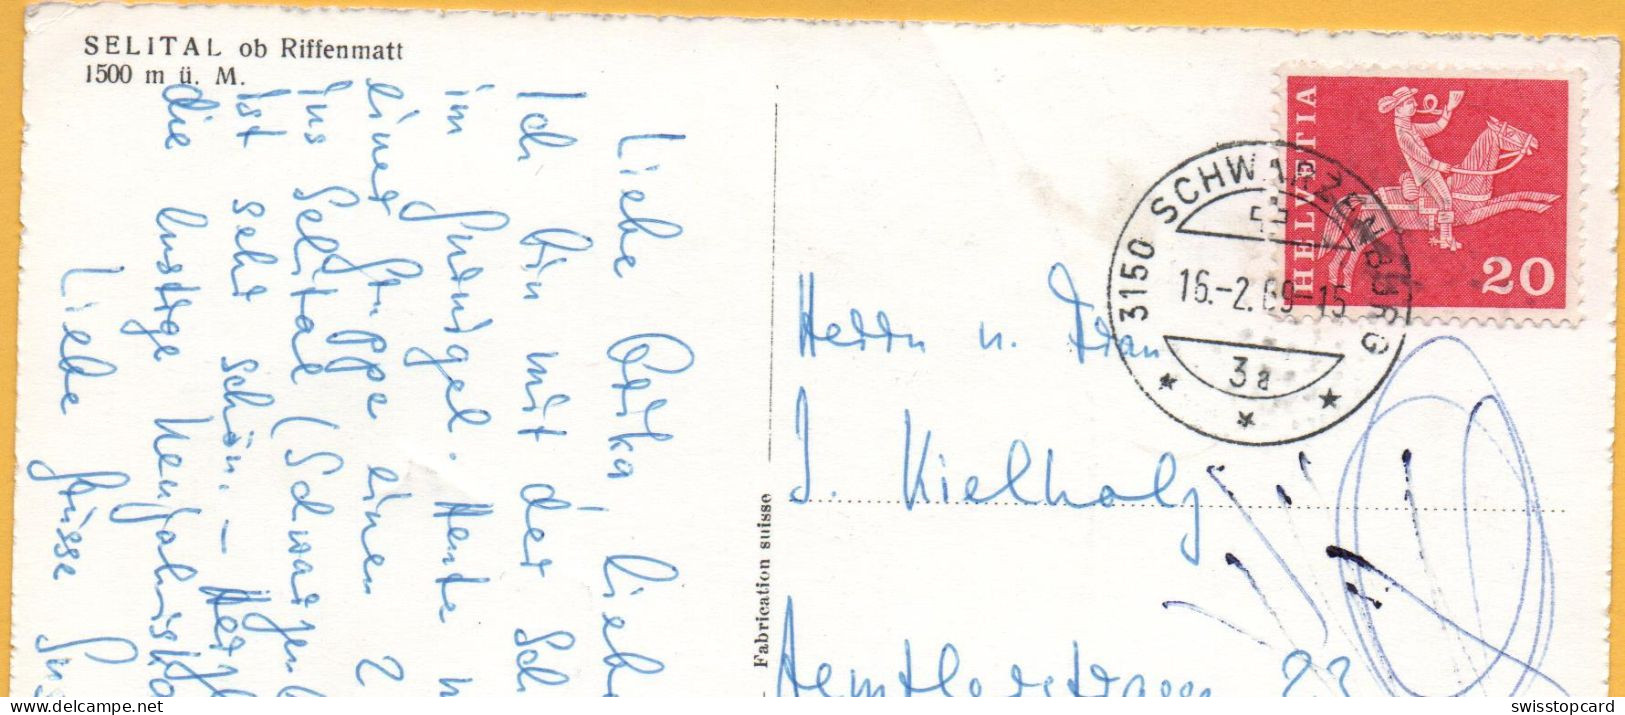 SELITAL ob Riffenmatt
1500 m ü. M.
Liebe
Ich bin mit der Sch
im Gurnigel. Heute
einer Gruppe einen 2
ins Selital (Schwarzen
ist sehr schön. –
die lustige Neujahrs
Liebe Grüsse
Fabrication suisse
HELVETIA
20
3150 SCHWARZENBURG
16.-2.69-15
3a
Herrn u. Frau
J. Kielholz
Aemtlerstrasse 23
delcampe.net
swisstopcard